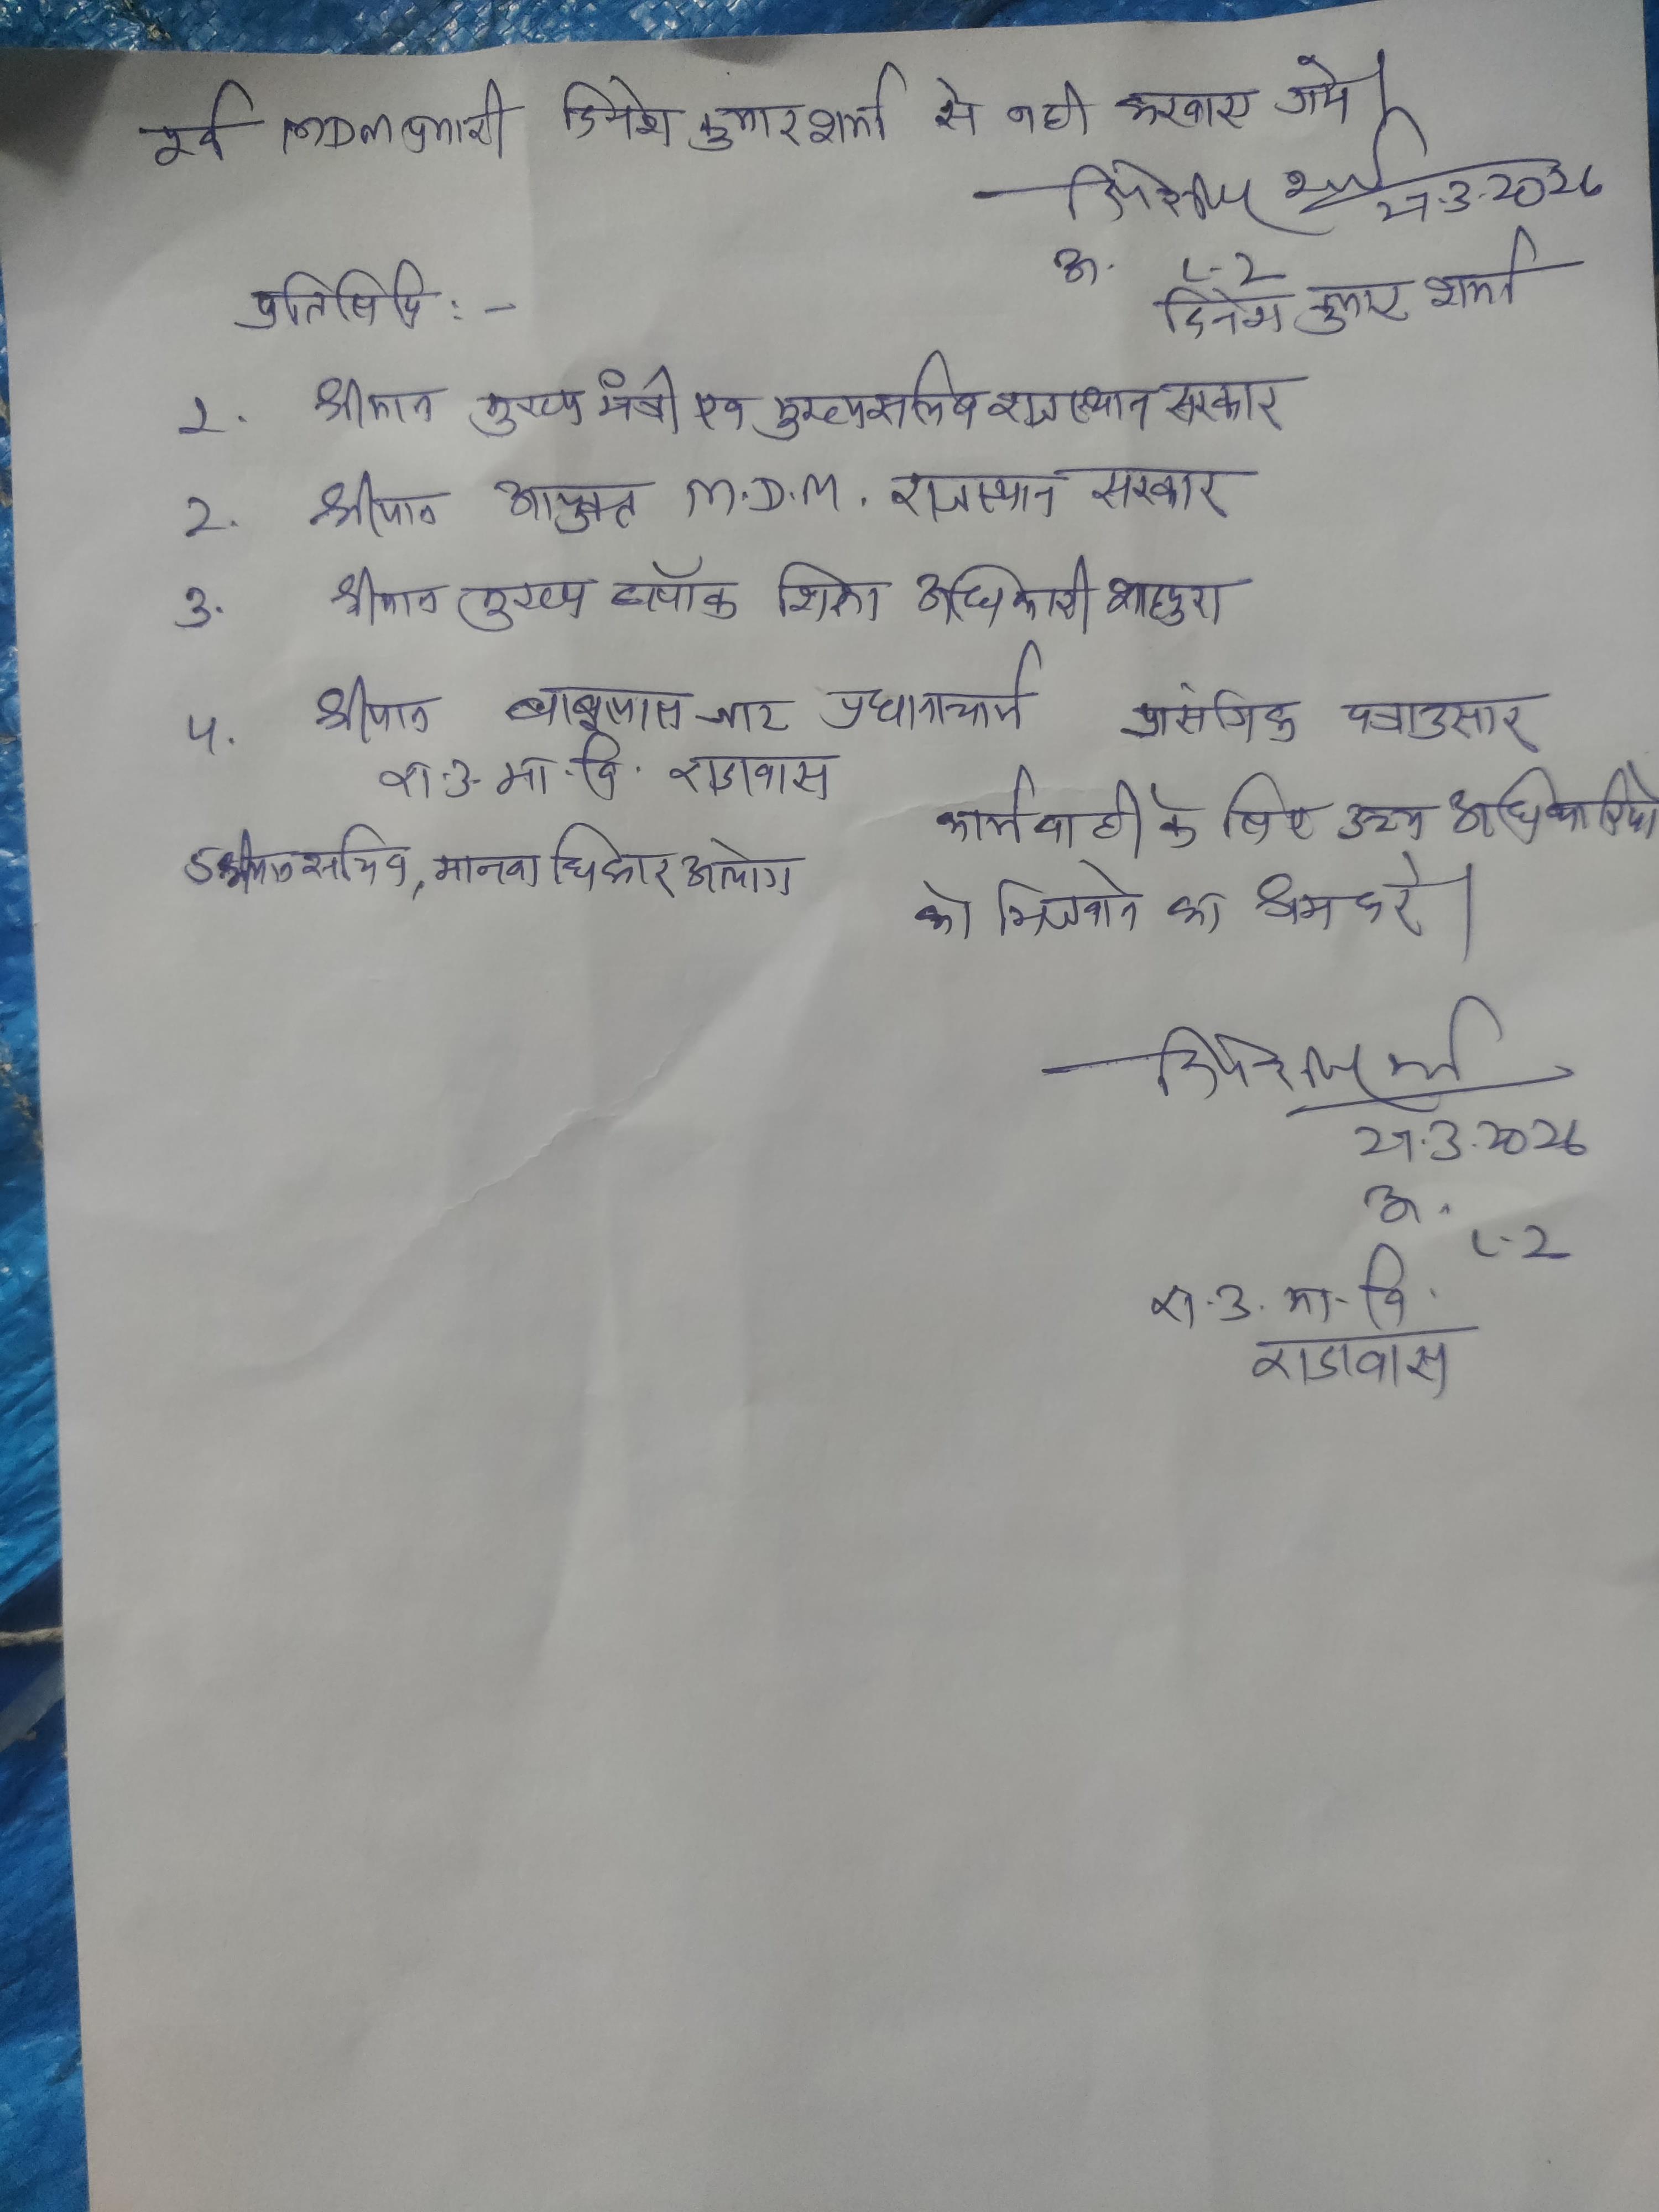 पूर्व MDM प्रभारी दिनेश कुमार शर्मा से नही करवाए जाये।
दिनेश शर्मा
27.3.2026
अ. L-2
दिनेश कुमार शर्मा
प्रतिलिपि : -
1. श्रीमान मुख्य मंत्री एव मुख्य सचिव राजस्थान सरकार
2. श्रीमान आयुक्त M.D.M. राजस्थान सरकार
3. श्रीमान मुख्य ब्लॉक शिक्षा अधिकारी शाहपुरा
4. श्रीमान बाबूलाल जाट प्रधानाचार्य
रा.उ.मा.वि. राडावास
5 श्रीमान सचिव, मानवाधिकार आयोग
प्रासंगिक पत्रानुसार
कार्यवाही के लिए उच्च अधिकारियो
को भिजवाने का श्रम करे।
दिनेश शर्मा
27.3.2026
अ. L-2
रा.उ.मा.वि.
राडावास